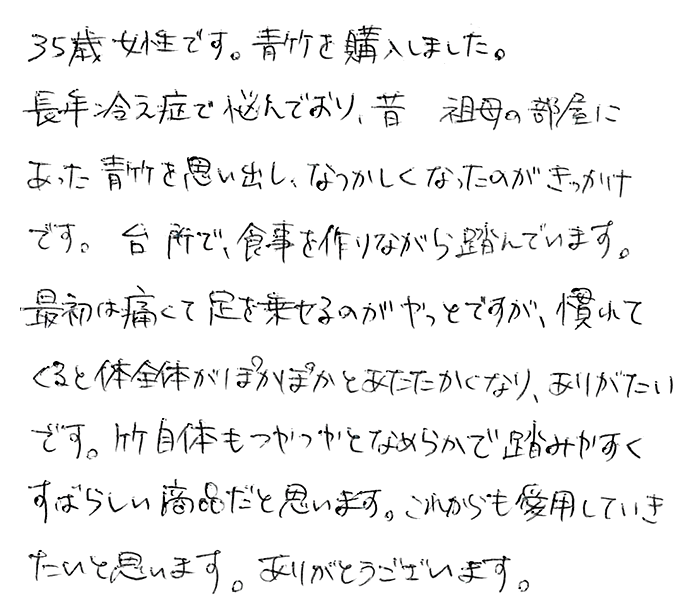 35歳女性です。青竹を購入しました。
長年冷え症で悩んでおり、昔 祖母の部屋に
あった青竹を思い出し、なつかしくなったのがきっかけ
です。 台所で、食事を作りながら踏んでいます。
最初は痛くて足を乗せるのがやっとですが、慣れて
くると体全体がぽかぽかとあたたかくなり、ありがたい
です。竹自体もつやつやとなめらかで踏みやすく
すばらしい商品だと思います。これからも愛用していき
たいと思います。ありがとうございます。